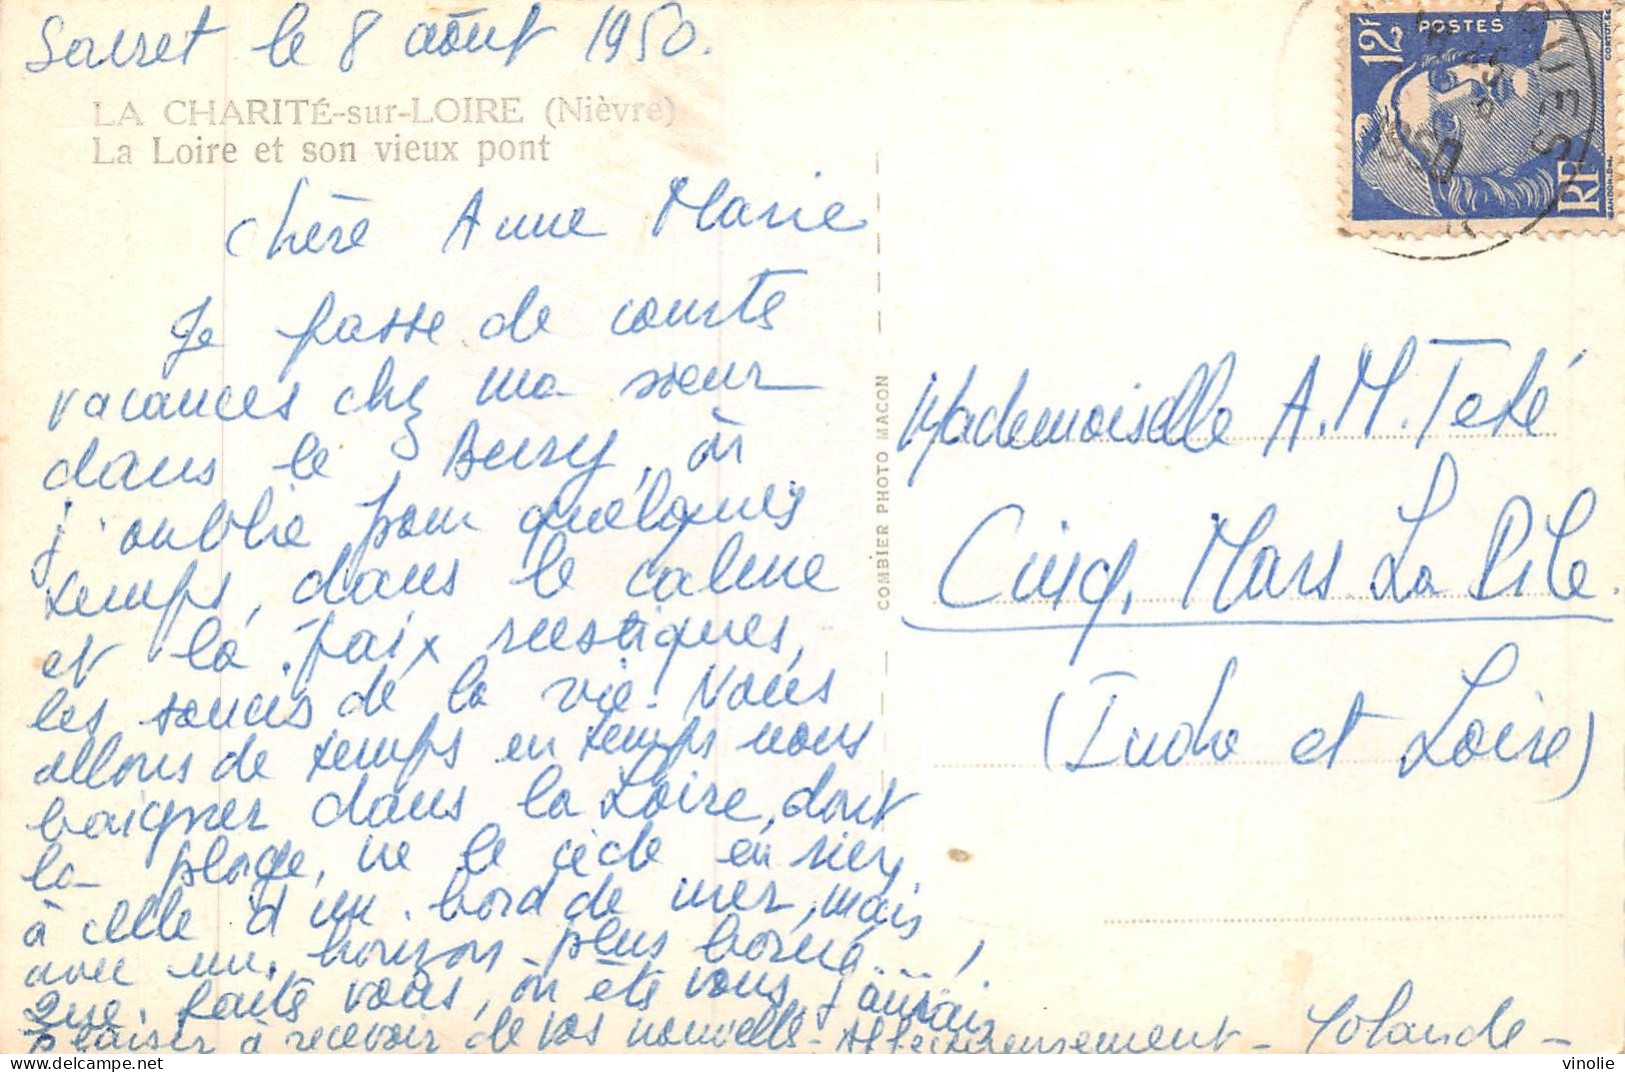 le 8 août 1950.
LA CHARITÉ-sur-LOIRE (Nièvre)
La Loire et son vieux pont
Chère Anne Marie
Je passe de courte
vacances chez ma sœur
dans le Berry, où
j'oublie pour quélques
temps, dans le calme
et la paix rustiques,
les soucis de la vie. Nous
allons de temps en temps nous
baigner dans la Loire, dont
la plage, ne le cède en rien,
à celle d'un bord de mer, mais
avec un horizon plus borné....,
Que faite vous, où ète vous, j'aurais
Plaisir à recevoir de vos nouvelle - Affectueusement - Yolande -
COMBIER PHOTO MACON
12F
POSTES
RF
GANDON.DEL
Mademoiselle A.M. Teté
Cinq. Mars La Pile.
(Indre et Loire)
vinolie